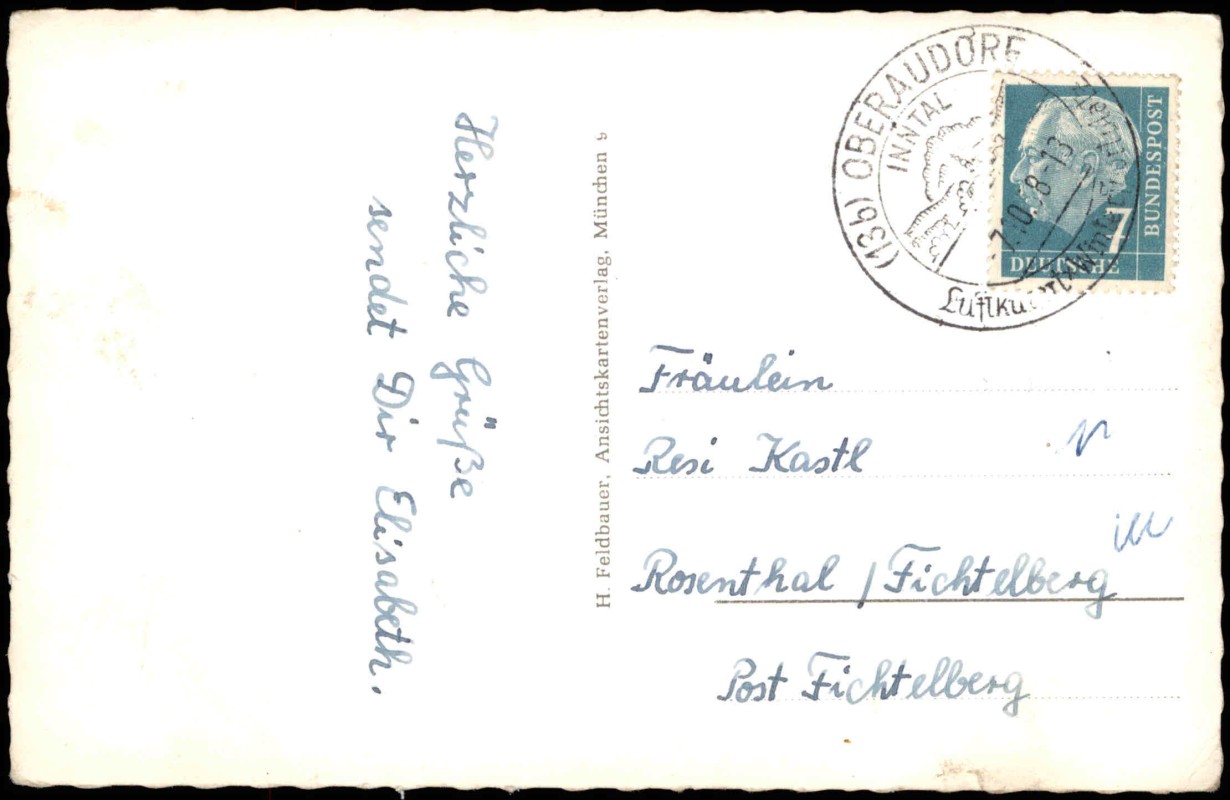 Herzliche Grüße
sendet Dir Elisabeth.
H. Feldbauer, Ansichtskartenverlag, München 9
(13b) OBERAUDORF
INNTAL
7.10.58-13
DEUTSCHE
BUNDESPOST
7
Fräulein
Resi Kastl
Rosenthal / Fichtelberg
Post Fichtelberg